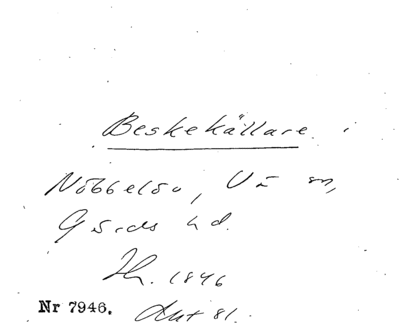 Beskekällare i
Nöbbelöv, Vä sn,
Gärds hd.
Th. 1846
Nr 7946. Aut 81.